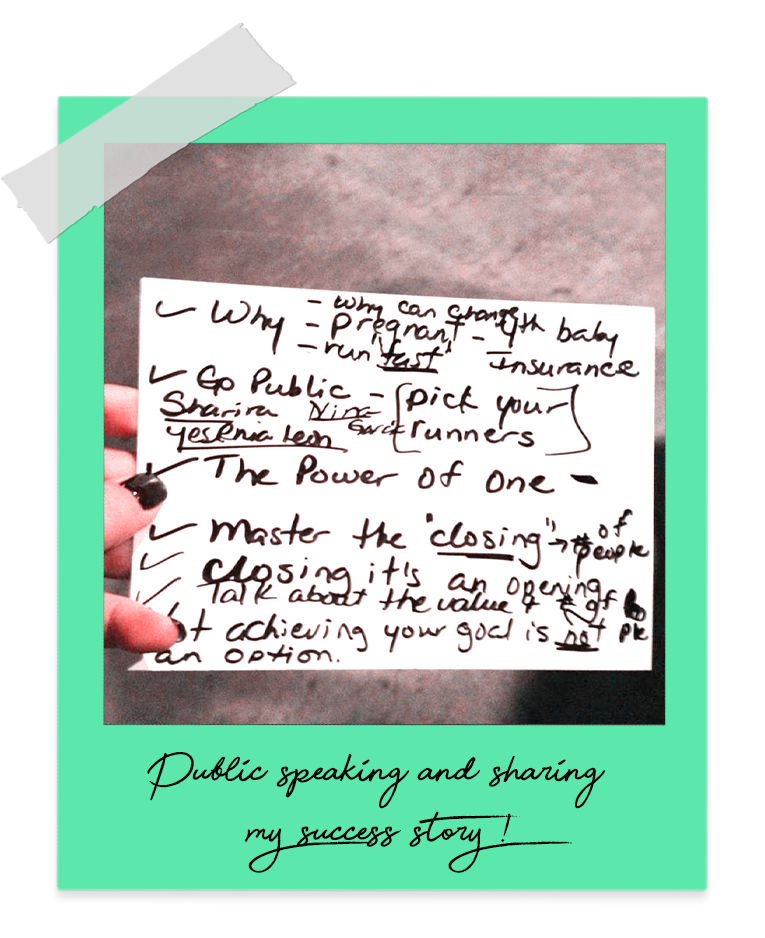 ✓ Why - why can change
- Pregnant - 4th baby
- run "fast" Insurance
✓ Go Public - [pick your
Sharira Nina
Yessenia Leon Garcia runners]
✓ The Power of one -
✓ Master the "closing" → # of
people
✓ closing it's an opening
✓ Talk about the value & # of
achieving your goal is not ple
an option.
Public speaking and sharing
my success story!